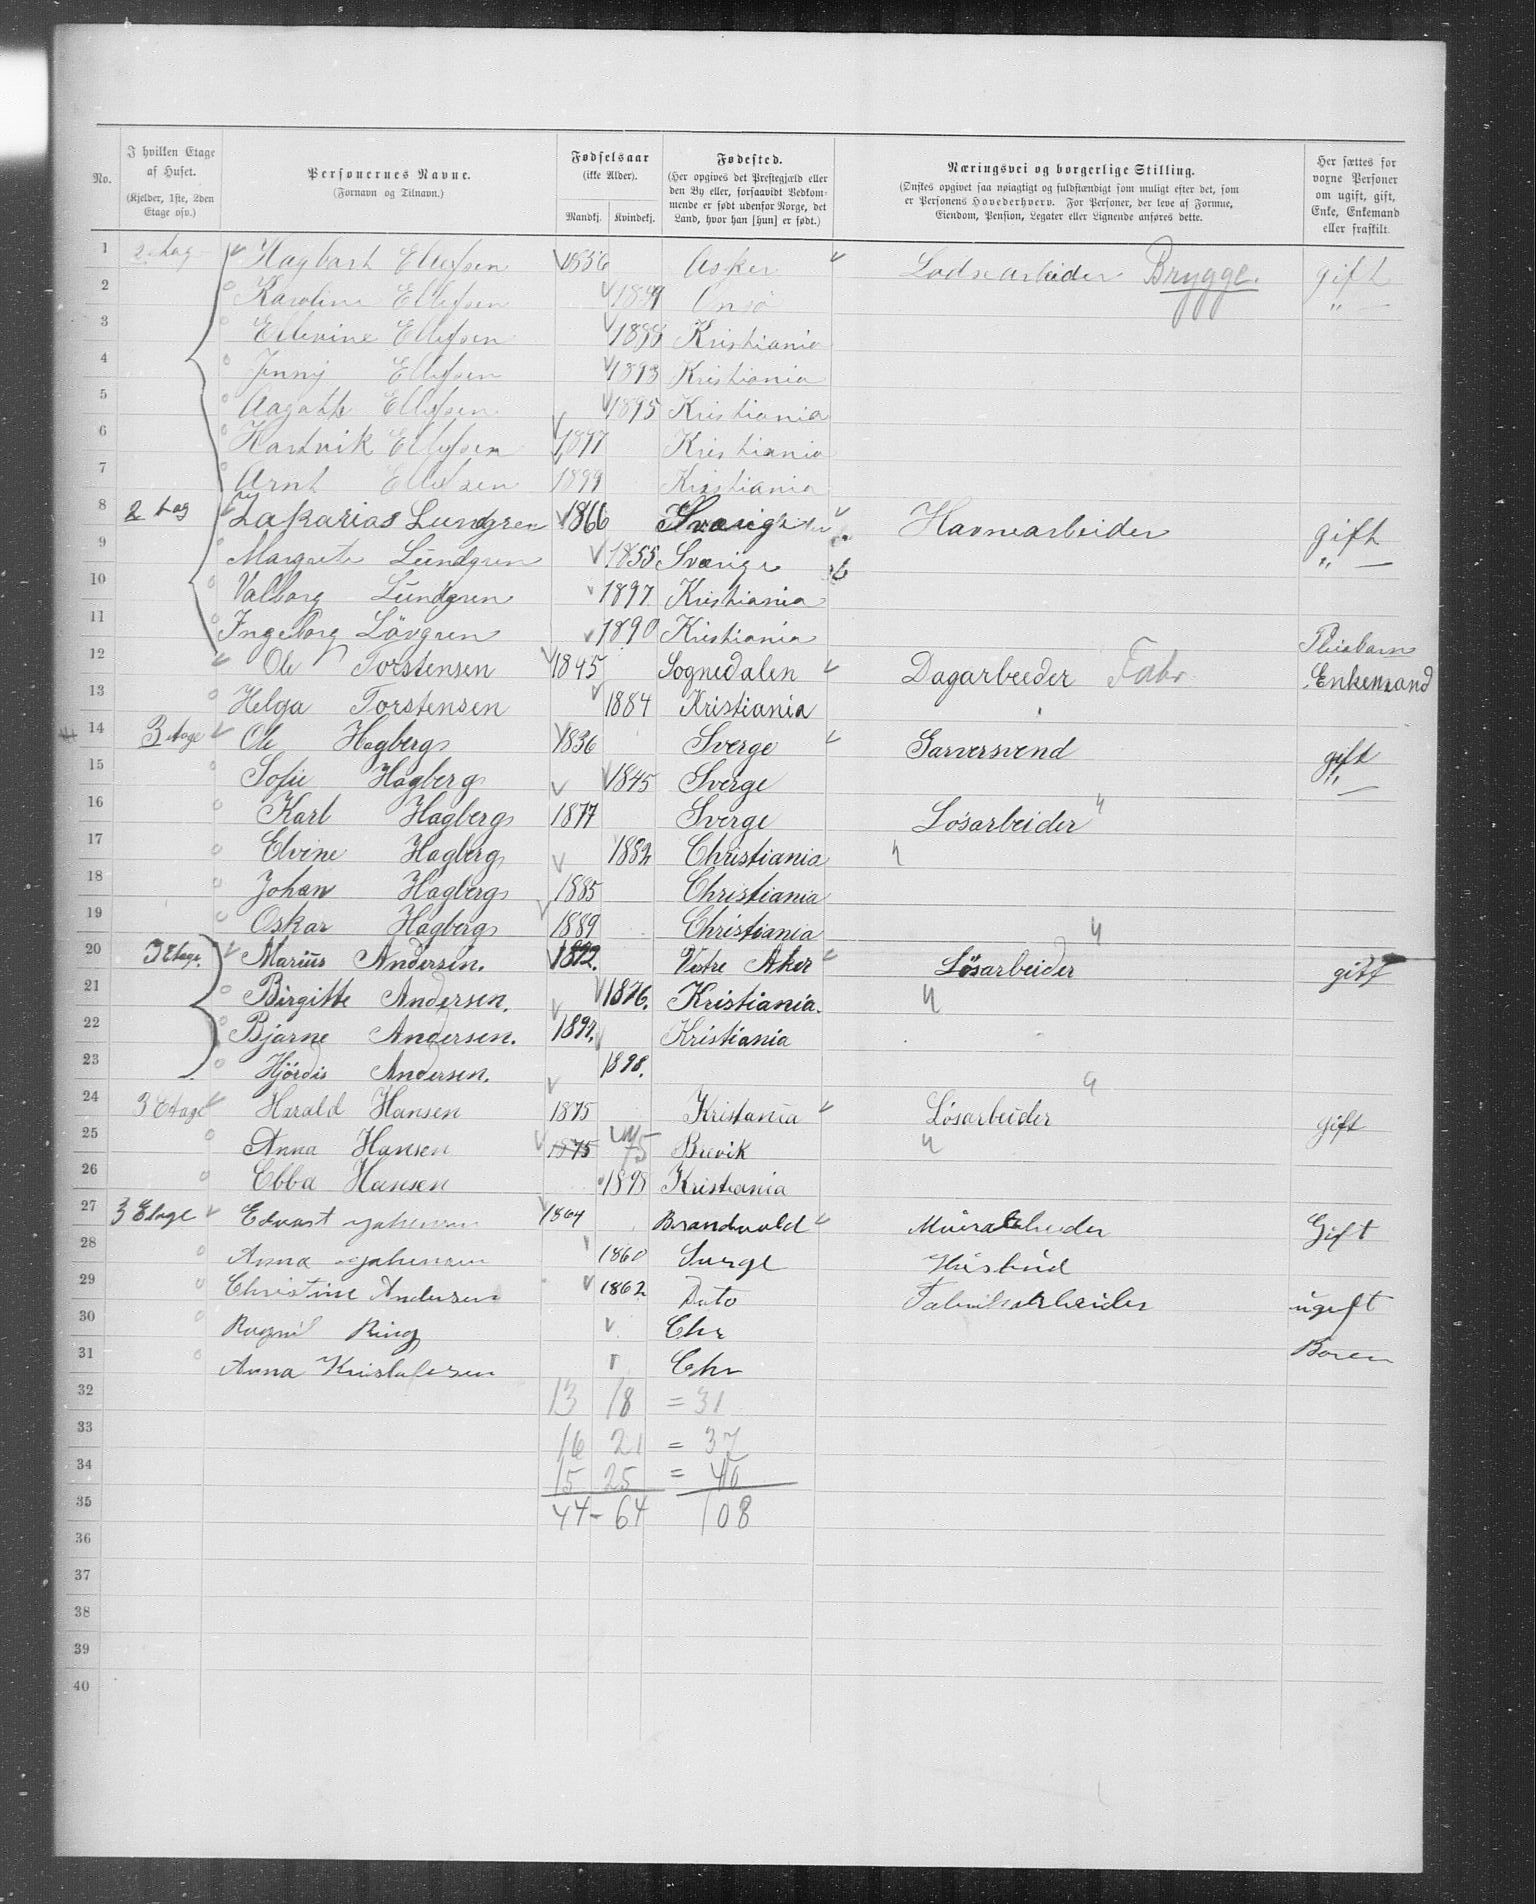 No. | I hvilken Etage af Huset. (Kjelder, 1ste, 2den Etage osv.) | Personernes Navne. (Fornavn og Tilnavn.) | Fødselsaar (ikke Alder). Mandkj. Kvindekj. | Fødested. (Her opgives det Prestegjæld eller den By eller, forsaavidt Vedkommende er født udenfor Norge, det Land, hvor han [hun] er født.) | Næringsvei og borgerlige Stilling. (Ønskes opgivet saa nøiagtigt og fuldstændigt som muligt efter det, som er Personens Hovederhverv. For Personer, der leve af Formue, Eiendom, Pension, Legater eller Lignende anføres dette.) | Her sættes for voxne Personer om ugift, gift, Enke, Enkemand eller fraskilt.
1 2 Etag Hagbart Ellefsen 1856 Asker Lodsearbeider Brygge. gift
2 Karoline Ellefsen Onsö " —
3 Ellevine Ellefsen Kristiania
4 Jenny Ellefsen 1893 Kristiania
5 Aagathe Ellefsen 1895 Kristiania
6 Hartvik Ellefsen 1897 Kristiania
7 Arnt Ellefsen 1899 Kristiania
8 2 tag Zakarias Lundgren 1866 Sværige Havnearbeider gift
9 Margrete Lundgren 1855 Sværige " —
10 Valborg Lundgren 1897 Kristiania
11 Ingeborg Lövgren 1890 Kristiania Pleiebarn
12 Ole Torstensen 1845 Sognedalen Dagarbeeder Fabr. Enkemand
13 Helga Torstensen 1884 Kristiania
14 3 Etage Ole Hagberg 1836 Sverge Garversvend gift
15 Sofie Hagberg 1845 Sverge " —
16 Karl Hagberg 1877 Sverge Lösarbeider
17 Elvine Hagberg 1882 Christiania
18 Johan Hagberg 1885 Christiania
19 Oskar Hagberg 1889 Christiania
20 3 Etage. Marius Andersen. 1872. Vestre Aker Lösarbeider gift
21 Birgitte Andersen. 1876. Kristiania.
22 Bjarne Andersen. 1897. Kristiania
23 Hjördis Andersen. 1898.
24 3 Etage Harald Hansen 1875 Kristania Lösarbeider gift
25 Anna Hansen 1875 75 Brevik
26 Ebba Hansen 1898 Kristiania
27 3 Etage Edvart Johansen 1864 Brandvold Murarbeider Gift
28 Anna Johansen 1860 Surge Husbud
29 Christine Andersen 1862 Dito Fabrikarbeider ugift
30 Ragnil Ring Chr
31 Anna Kristofersen Chr
32 13 18 = 31
33 16 21 = 37
34 15 25 = 40
35 44 - 64 108
36
37
38
39
40